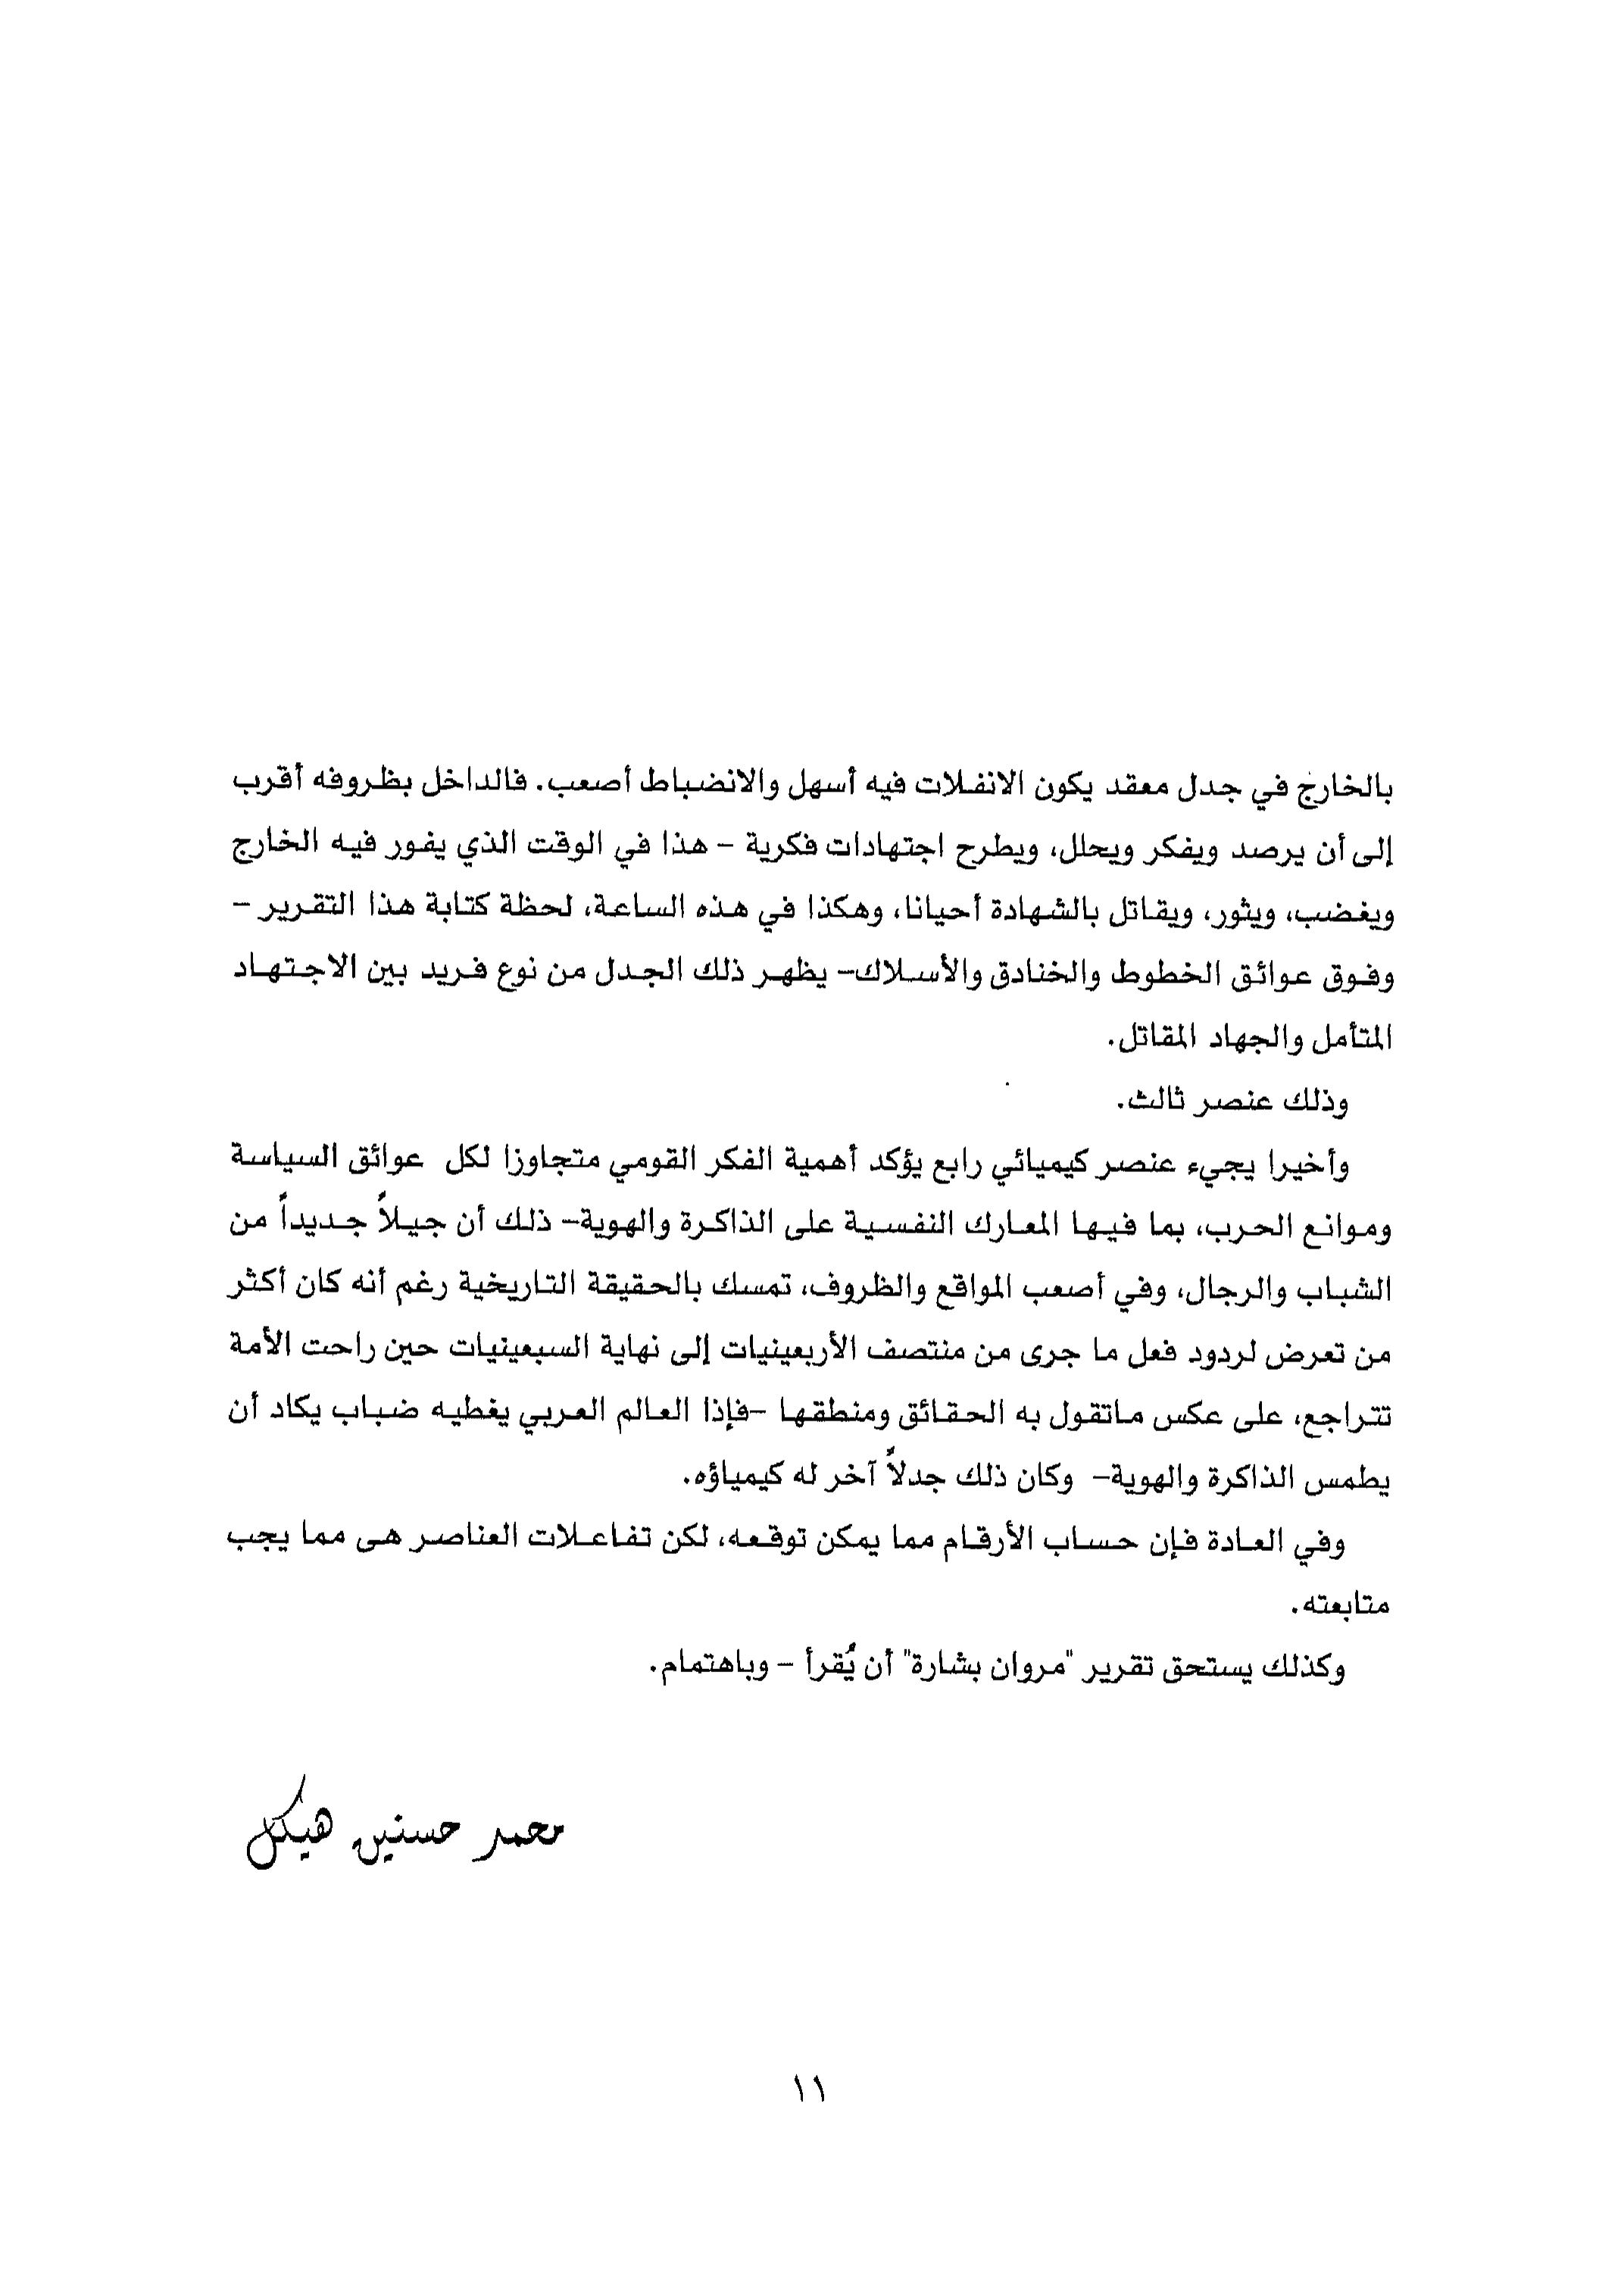 بالخارج في جدل معقد يكون الانفلات فيه أسهل والانضباط أصعب. فالداخل بظروفه أقرب
إلى أن يرصد ويفكر ويحلل، ويطرح اجتهادات فكرية – هذا في الوقت الذي يفور فيه الخارج
ويغضب، ويثور، ويقاتل بالشهادة أحيانا، وهكذا في هذه الساعة، لحظة كتابة هذا التقرير –
وفوق عوائق الخطوط والخنادق والأسلاك– يظهر ذلك الجدل من نوع فريد بين الاجتهاد
المتأمل والجهاد المقاتل.
وذلك عنصر ثالث.
وأخيرا يجيء عنصر كيميائي رابع يؤكد أهمية الفكر القومي متجاوزا لكل عوائق السياسة
وموانع الحرب، بما فيها المعارك النفسية على الذاكرة والهوية– ذلك أن جيلاً جديداً من
الشباب والرجال، وفي أصعب المواقع والظروف، تمسك بالحقيقة التاريخية رغم أنه كان أكثر
من تعرض لردود فعل ما جرى من منتصف الأربعينيات إلى نهاية السبعينيات حين راحت الأمة
تتراجع، على عكس ماتقول به الحقائق ومنطقها –فإذا العالم العربي يغطيه ضباب يكاد أن
يطمس الذاكرة والهوية– وكان ذلك جدلاً آخر له كيمياؤه.
وفي العادة فإن حساب الأرقام مما يمكن توقعه، لكن تفاعلات العناصر هى مما يجب
متابعته.
وكذلك يستحق تقرير "مروان بشارة" أن يُقرأ – وباهتمام.
محمد حسنين هيكل
١١